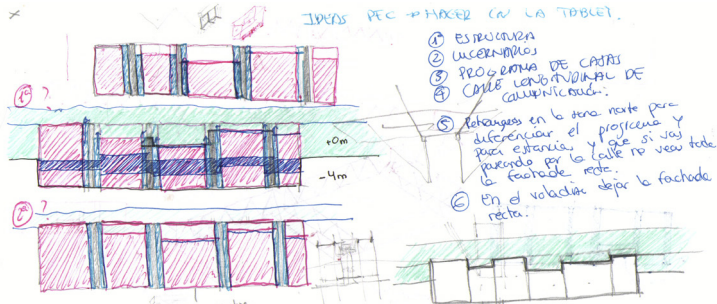 IDEAS PFC → HACER EN LA TABLET.
① ESTRUCTURA
② LUCERNARIOS
③ PROGRAMA DE CAJAS
④ CALLE LONGITUDINAL DE
COMUNICACIÓN.
⑤ Retranqueos en la zona norte para
diferenciar el programa y
para estancia y que si vas
paseando por la calle no veas toda
la fachada recta.
⑥ En el voladizo dejar la fachada
recta.
1º ?
+0m
-4m
2º ?